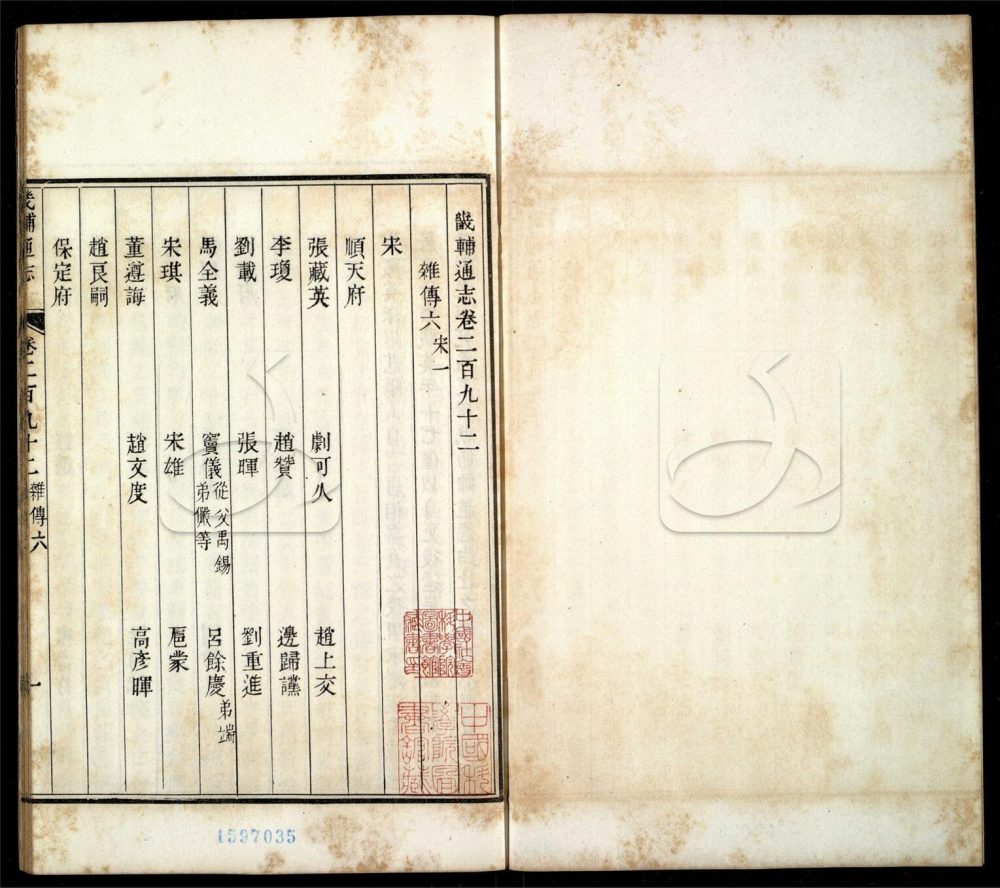 畿輔通志卷二百九十二
雜傳六 宋一
宋
順天府
張藏英 劇可久 趙上交
李瓊 趙贊 邊歸讜
劉載 張暉 劉重進
馬全義 竇儀 從父禹錫 弟儼等 呂餘慶 弟端
宋琪 宋雄 扈蒙
董遵誨 趙文度 高彥暉
趙良嗣
保定府
畿輔通志 卷二百九十二 雜傳六 一
中國社會科學院圖書館藏書印
中國科
1597035